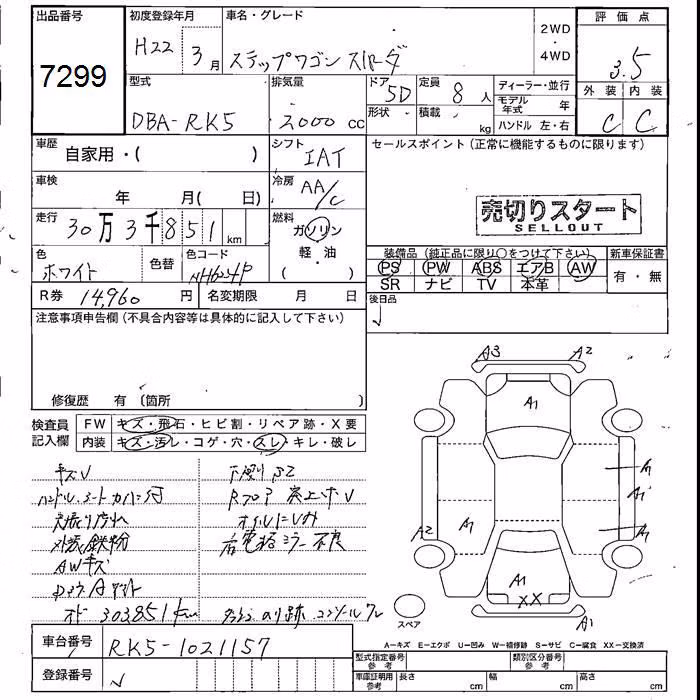 出品番号
7299
初度登録年月
H22 3月
車名・グレード
ステップワゴン スパーダ
2WD
・
4WD
評価点
3.5
外装 内装
C C
型式
DBA-RK5
排気量
2000 cc
ドア
5D
形状
定員
8 人
積載
kg
ディーラー・並行
モデル年式 年
ハンドル 左・右
車歴
自家用・( )
シフト
IAT
セールスポイント(正常に機能するものに限ります)
売切りスタート
SELLOUT
車検
年 月( 日)
冷房
AA/C
走行
30万3千851 km
燃料
ガソリン
軽・油
( )
色
ホワイト
色替
色コード
NH624P
装備品 (純正品に限り○をつけて下さい)
PS PW ABS エアB AW
SR ナビ TV 本革
新車保証書
有・無
R券 14,960 円
名変期限 月 日
後日品
注意事項申告欄(不具合内容等は具体的に記入して下さい)
修復歴 有 (箇所 )
検査員
記入欄
FW キズ・飛石・ヒビ割・リペア跡・X要
内装 キズ・汚レ・コゲ・穴・スレ・キレ・破レ
キズU
ハンドル、シートカバー付
鉄粉
AWキズ
オド 303851km
右電格ミラー不良
のり跡
A3
A2
A1
A1
A1
A1
A2
A1
A1
XX
A1
スペア
A-キズ E-エクボ U-凹み W-補修跡 S-サビ C-腐食 XX-交換済
車台番号 RK5-1021157
登録番号
型式指定番号
参考
類別区分番号
参考
車庫証明用
参考
長さ cm
幅 cm
高さ cm